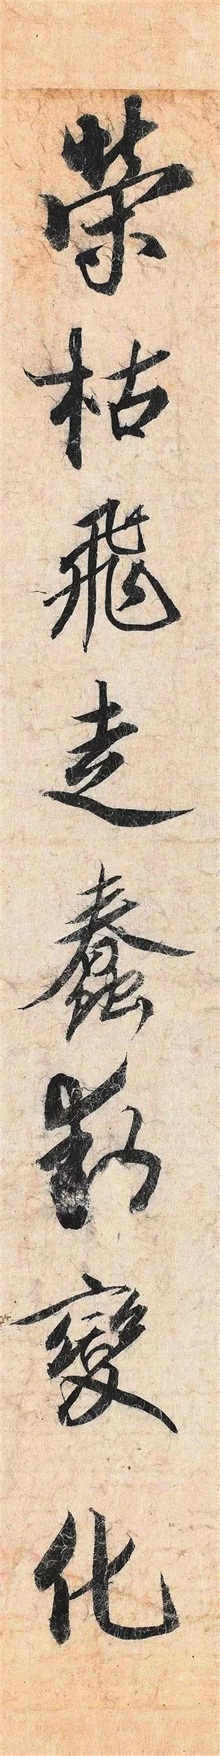 榮枯飛走蠢動變化